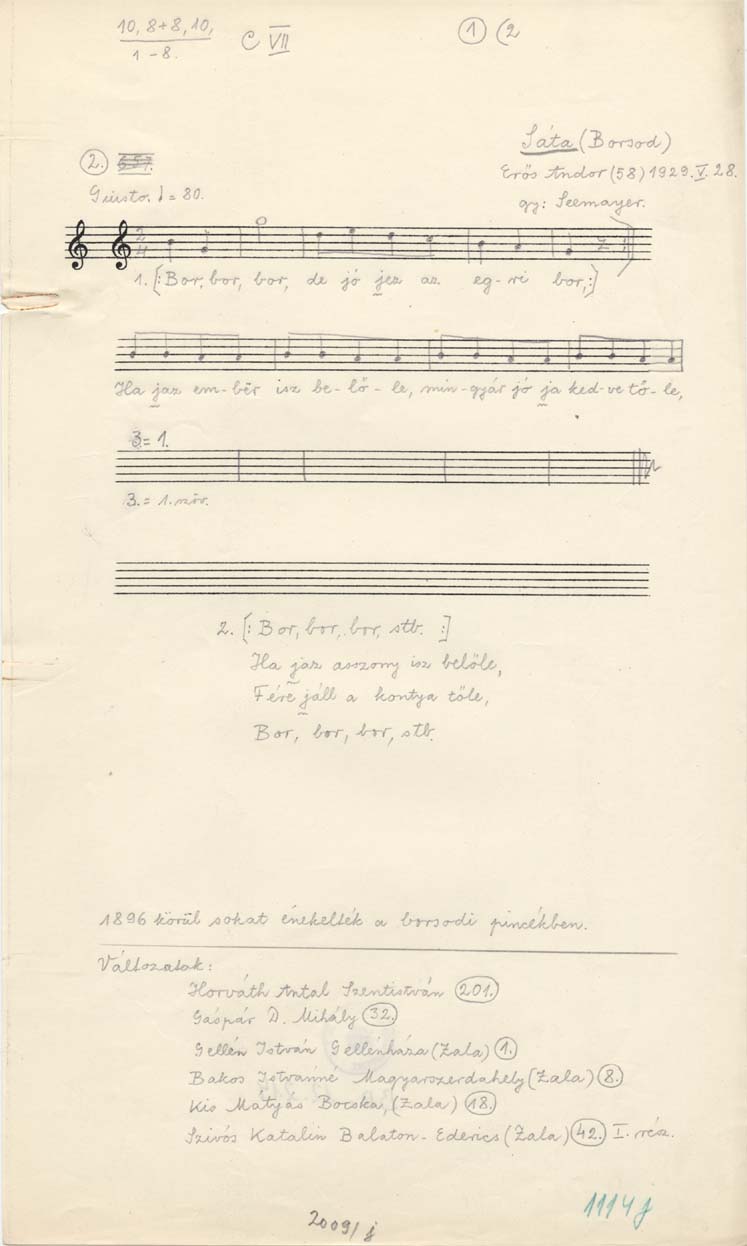 10, 8+8, 10,
1-8.
C VII
1 (2
Sáta (Borsod)
2.
Erős Andor (58) 1929. V. 28.
Giusto. ♩= 80.
gy: Seemayer.
2
4
1. [: Bor, bor, bor, de jó jez az eg-ri bor, :]
Ha jaz em-bër isz be-lő-le, min-gyár jó ja ked-ve tő-le,
3. = 1.
3. = 1. szöv.
2. [: Bor, bor, bor, stb. :]
Ha jaz asszony isz belőle,
Féré jáll a kontya tőle,
Bor, bor, bor, stb.
1896 körül sokat énekelték a borsodi pincékben.
Változatok:
Horváth Antal Szentistván 201.
Gáspár D. Mihály 32.
Gellén István Gellénháza (Zala) 1.
Bakos Istvánné Magyarszerdahely (Zala) 8.
Kis Mátyás Bocska, (Zala) 18.
Szivós Katalin Balaton-Ederics (Zala) 42. I. rész.
1114j
2009/j